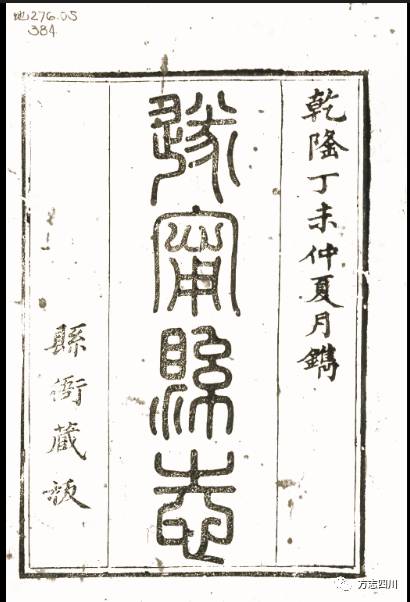 地276.05
384
乾隆丁未仲夏月鐫
遂寧縣志
縣衙藏板
方志四川